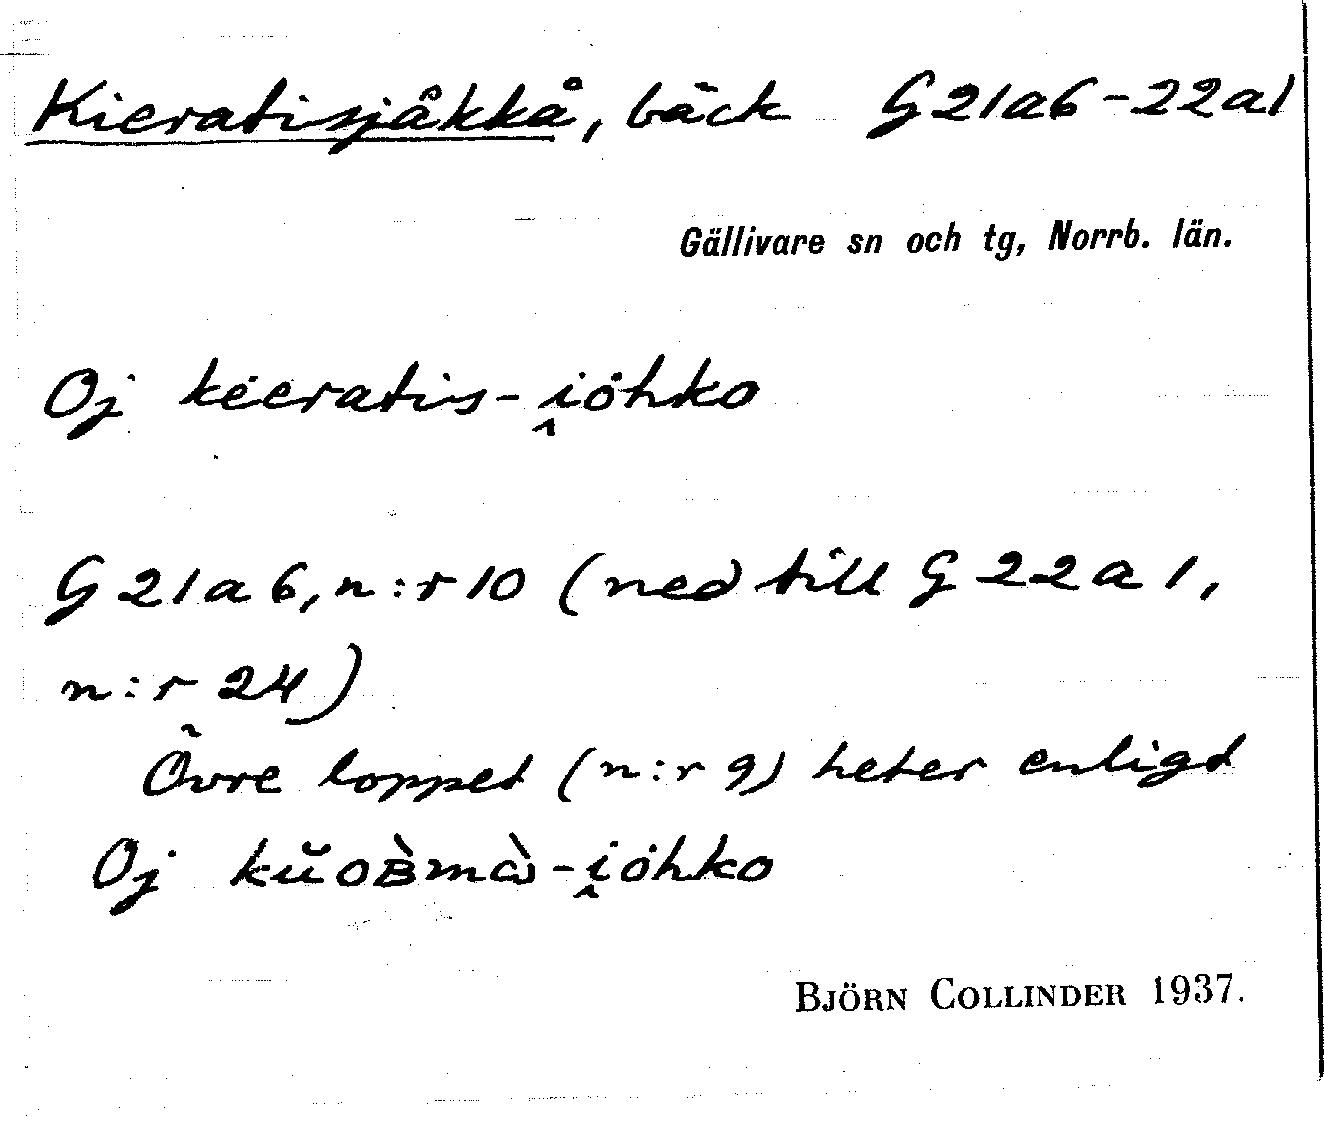 Kieratisjåkkå, bäck G21a6-22a1
Gällivare sn och tg, Norrb. län.
Oj kėeratis-i̯ȯhko
G21a6, n:r 10 (ned till G22a1,
n:r 24)
Övre loppet (n:r 9) heter enligt
Oj kŭoʙ̀mὼ-i̯ȯhko
BJÖRN COLLINDER 1937.